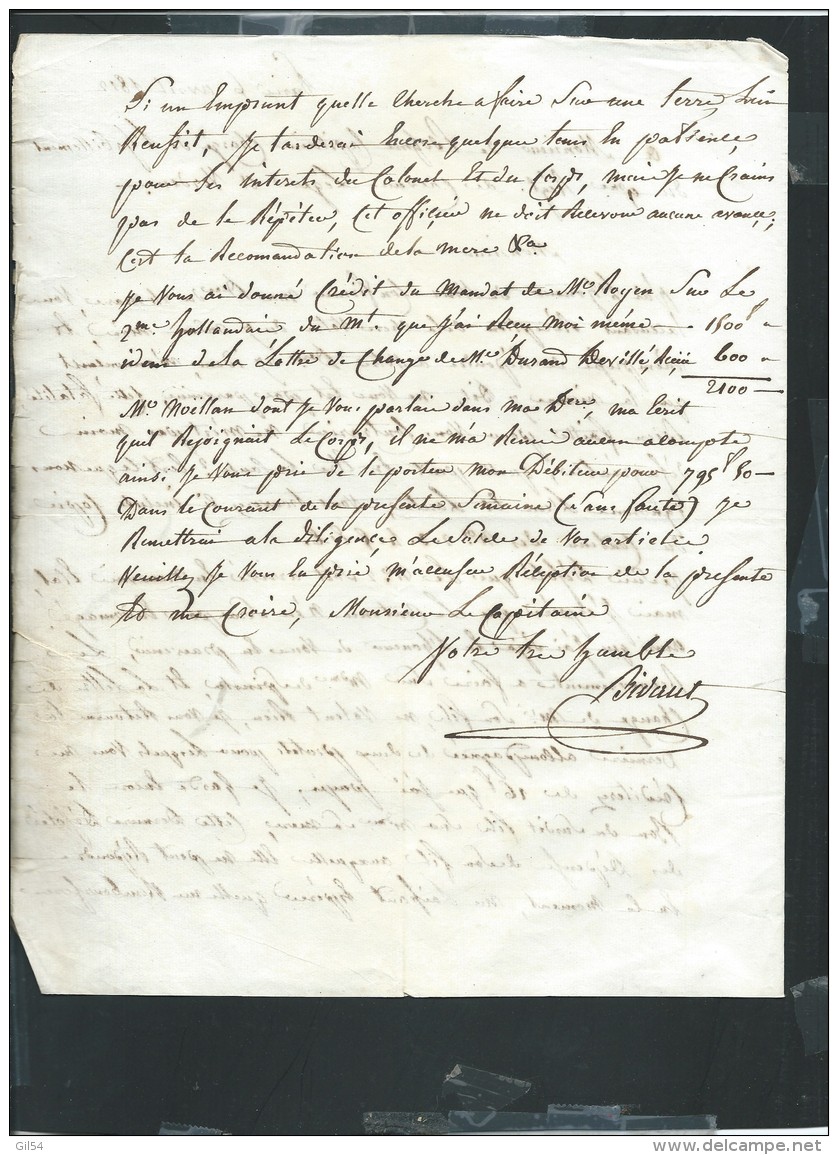 Si un Emprunt quelle Cherche a faire Sur une terre, lui
Reussit, Je tarderai Encore quelque tems En patience
pour Les interets du Colonel Et du Corps, mais Je ne Crains
pas de le Répéter, Cet officier ne doit Recevoir aucune avance,
C'est la Recomandation de la mere &a.
Je Vous ai donné Crédit du Mandat de Mr. Royen Sur Le
2me. hollandais du mt. que j'ai Recu moi même 1500f "
idem de la Lettre de Change de Mr. Durand Deville, 600 "
2100 —
Mr. Noillan dont Je Vous parlais dans ma Dere, ma Ecrit
quil Rejoignait Le Corps, il ne m'a Remis aucun acompte
ainsi Je Vous prie de le porter mon Débiteur pour 795f 50 —
Dans le Courant de la presente Semaine (Sans faute) Je
Remettrai a la diligence Le Solde de Vos articles
Veuillez Je Vous En prie, m'accuser Réception de la presente
Et me Croire, Monsieur Le Capitaine
Votre tres humble
Bidaut
Gil54
www.delcampe.net